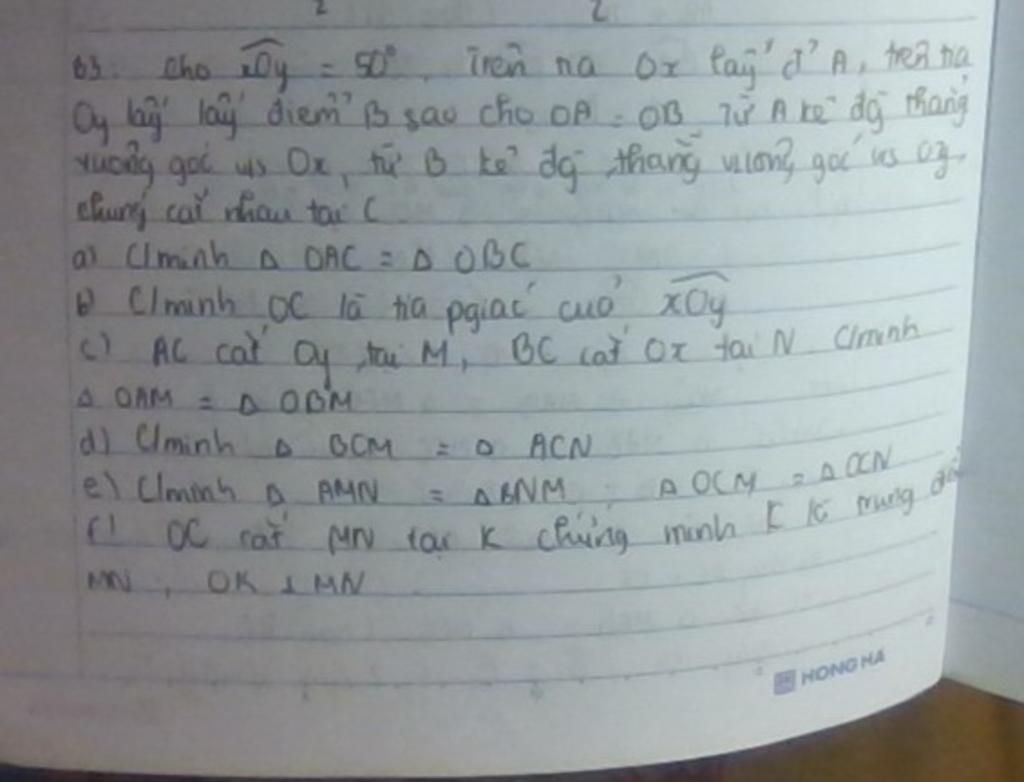 b3: Cho xOy = 50°. Trên tia Ox lấy đ' A, trên tia
Oy lấy lấy điểm B sao cho OA = OB Từ A kẻ đg thẳng
vuông góc vs Ox, từ B kẻ đg thẳng vuông góc vs Oy.
chúng cắt nhau tại C
a) C/minh Δ OAC = Δ OBC
b) C/minh OC là tia pgiác của xOy
c) AC cắt Oy tại M, BC cắt Ox tại N C/minh
Δ OAM = Δ OBM
d) C/minh Δ BCM = Δ ACN
e) C/minh Δ AMN = Δ BNM Δ OCM = Δ OCN
f) OC cắt MN tại K chứng minh K là trung
MN, OK ⊥ MN
HONG HA